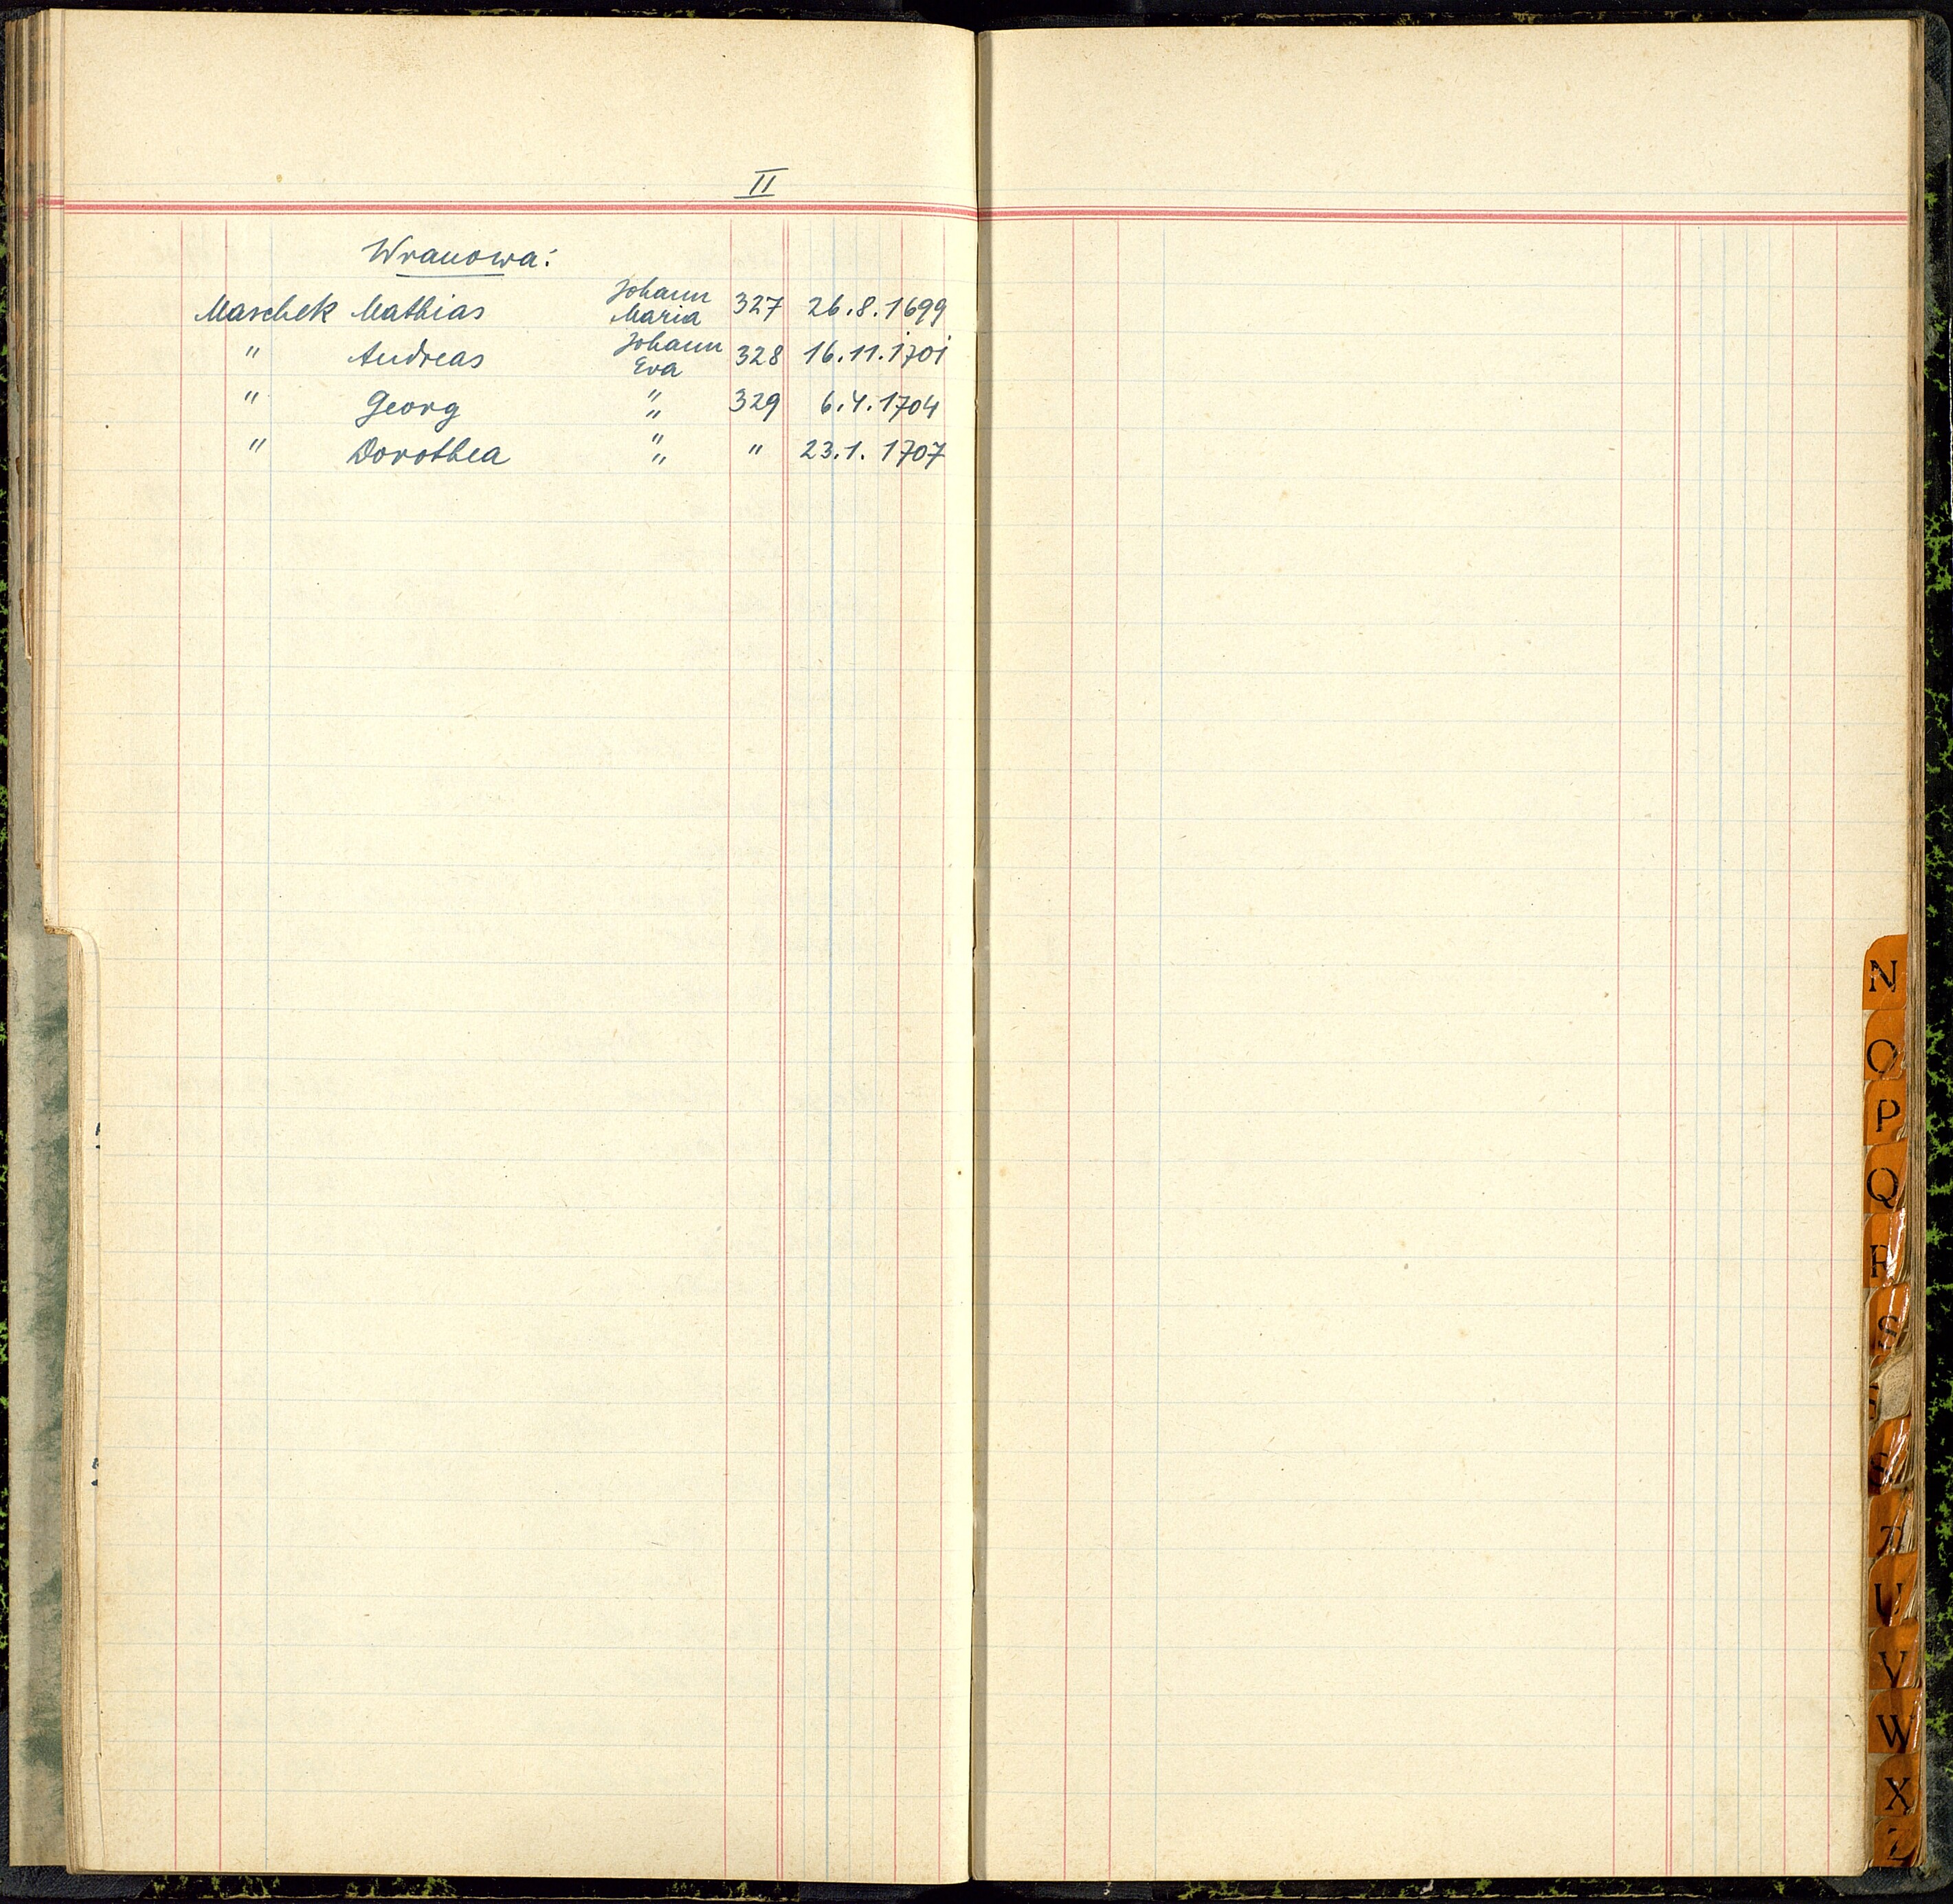 II
Wranowa:
Maschek Mathias Johann Maria 327 26.8.1699
" Andreas Johann Eva 328 16.11.1701
" Georg " " 329 6.4.1704
" Dorothea " " " 23.1.1707
N
O
P
Q
R
S
U
V
W
X
Z